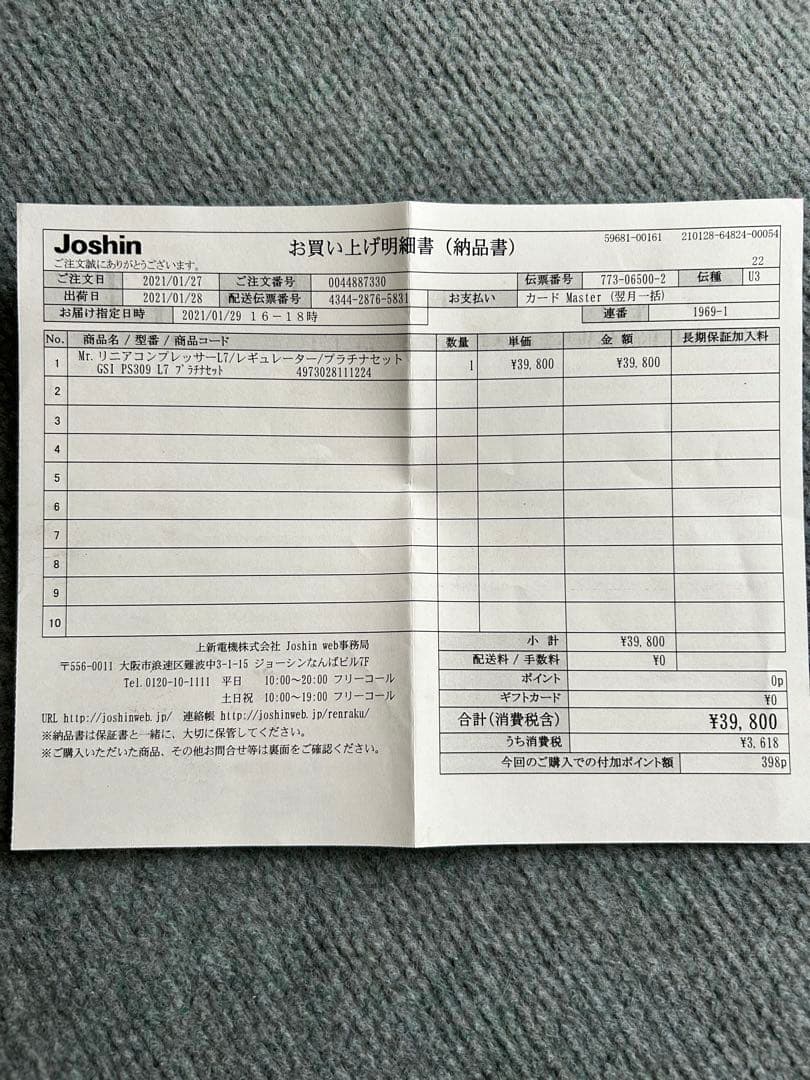 Joshin
お買い上げ明細書（納品書）
59681-00161 210128-64824-00054
ご注文誠にありがとうございます。
22
ご注文日 2021/01/27 ご注文番号 0044887330 伝票番号 773-06500-2 伝種 U3
出荷日 2021/01/28 配送伝票番号 4344-2876-5831 お支払い カード Master (翌月一括)
お届け指定日時 2021/01/29 16－18時 連番 1969-1
No. 商品名 / 型番 / 商品コード 数量 単価 金額 長期保証加入料
1 Mr.リニアコンプレッサーL7/レギュレーター/プラチナセット 1 ¥39,800 ¥39,800
GSI PS309 L7 プラチナセット 4973028111224
2
3
4
5
6
7
8
9
10
上新電機株式会社 Joshin web事務局
〒556-0011 大阪市浪速区難波中3-1-15 ジョーシンなんばビル7F
Tel.0120-10-1111 平日 10:00～20:00 フリーコール
土日祝 10:00～19:00 フリーコール
URL http://joshinweb.jp/ 連絡帳 http://joshinweb.jp/renraku/
※納品書は保証書と一緒に、大切に保管してください。
※ご購入いただいた商品、その他お問合せ等は裏面をご確認ください。
小計 ¥39,800
配送料 / 手数料 ¥0
ポイント 0p
ギフトカード ¥0
合計(消費税含) ¥39,800
うち消費税 ¥3,618
今回のご購入での付加ポイント額 398p